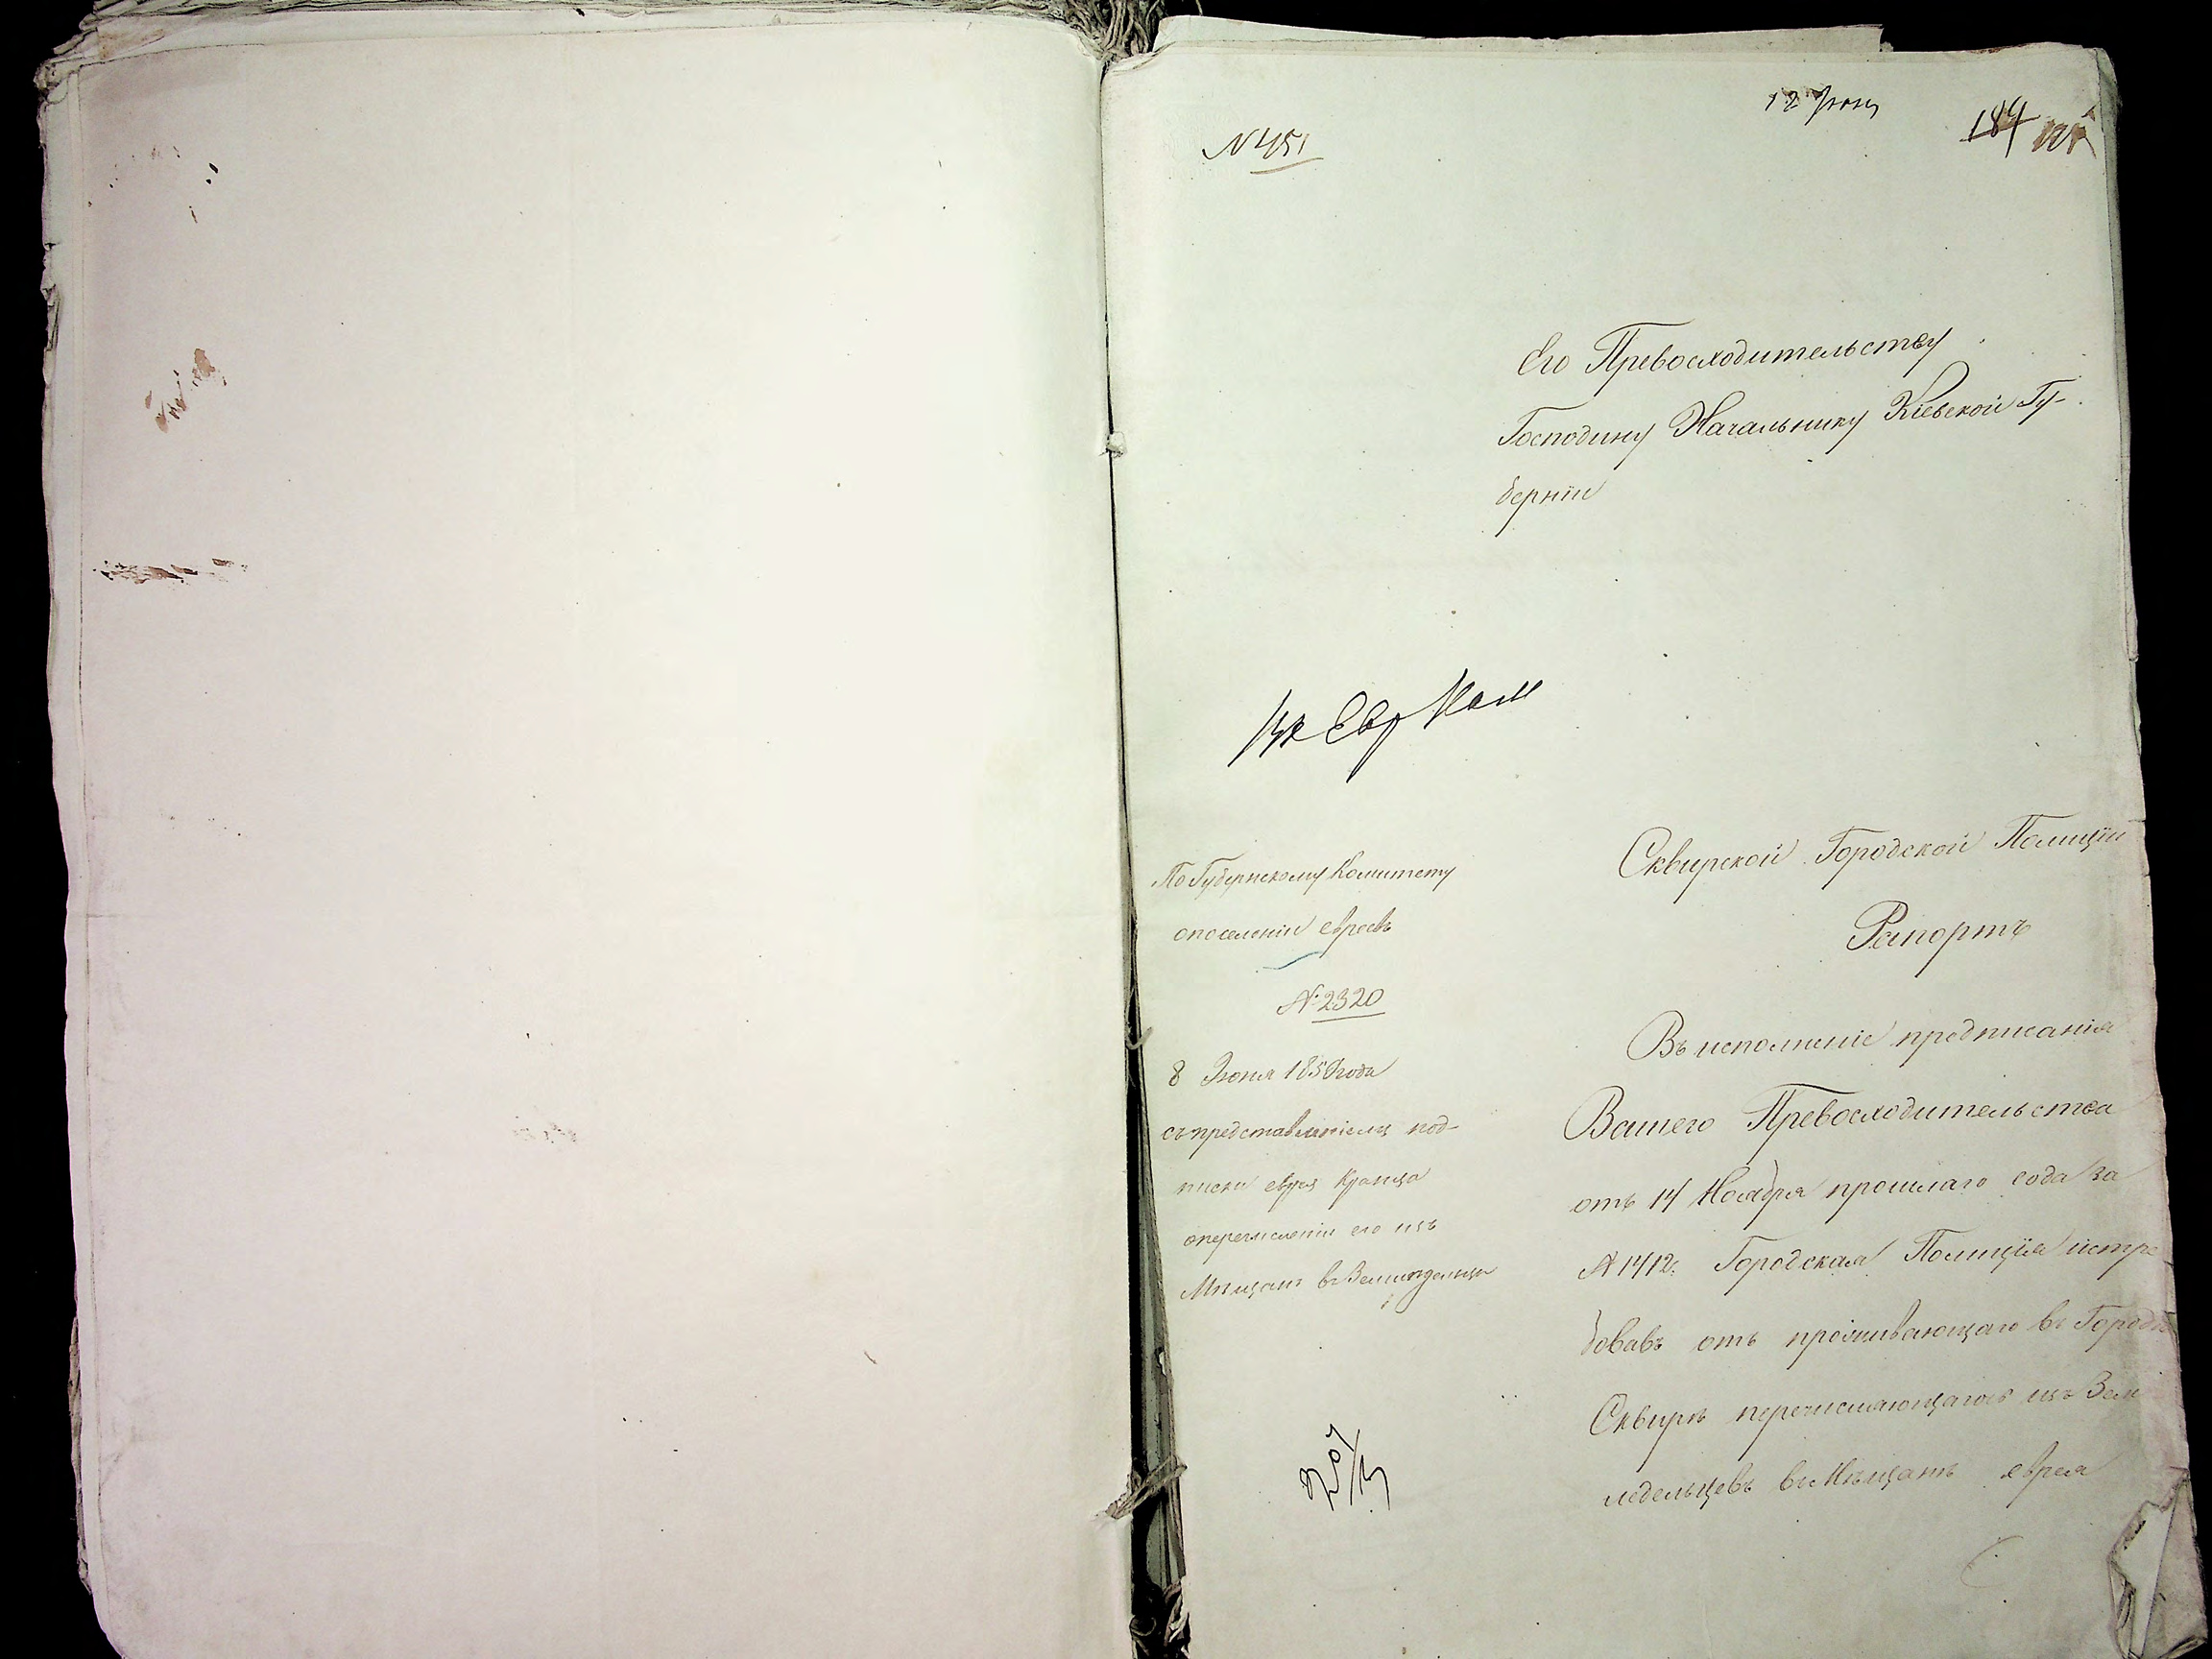 12 Іюня
184
№ 451
Его Превосходительству
Господину Начальнику Кіевской Гу-
берніи
Въ Евр Ком
По Губернскому Комитету
о поселеніи евреевъ
№ 2320
8 Іюня 185 года
съ представленіемъ под-
писки еврея Кранца
о перечисленіи его изъ
Мѣщанъ въ Земледельцы
Сквирской Городской Полиціи
Рапортъ
Въ исполненіе предписанія
Вашего Превосходительства
отъ 14 Ноября прошлаго года за
№ 1412. Городская Полиція истре
бовавъ отъ проживающаго въ Городѣ
Сквирѣ перечисляющагося изъ Зем
ледельцевъ въ Мѣщанъ еврея